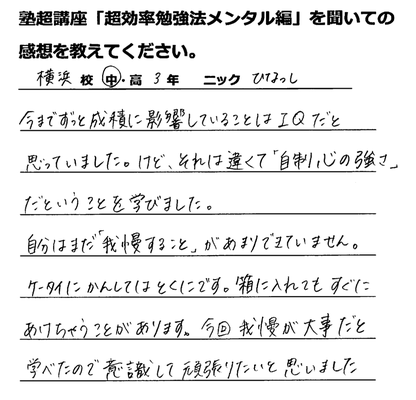 塾超講座「超効率勉強法メンタル編」を聞いての
感想を教えてください。
横浜 校 中・高 3 年 ニック ひなっし
今までずっと成積に影響していることはIQだと
思っていました。けど、それは違くて「自制心の強さ」
だということを学びました。
自分はまだ「我慢すること」があまりできていません。
ケータイにかんしてはとくにです。箱に入れてもすぐに
あけちゃうことがあります。今回我慢が大事だと
学べたので意識して頑張りたいと思いました